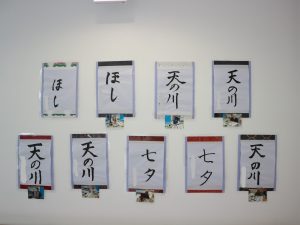 ほし
ほし
天の川
天の川
天の川
天の川
七夕
七夕
天の川